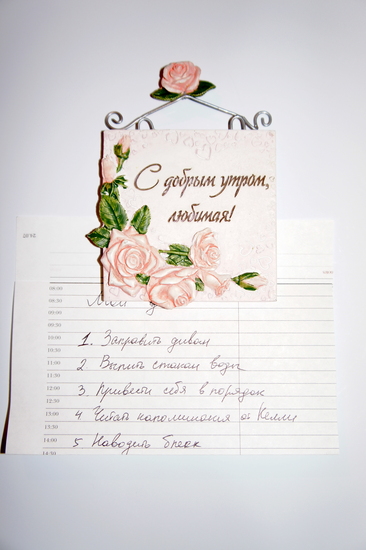 С добрым утром,
любимая!
08:00
08:30
09:00
10:00
10:30
11:00
11:30
12:00
12:30
13:00
13:30
14:00
1. Заправить диван
2 Выпить стакан воды
3. Привести себя в порядок
4 Читать напоминания от Келли
5 Наводить блеск